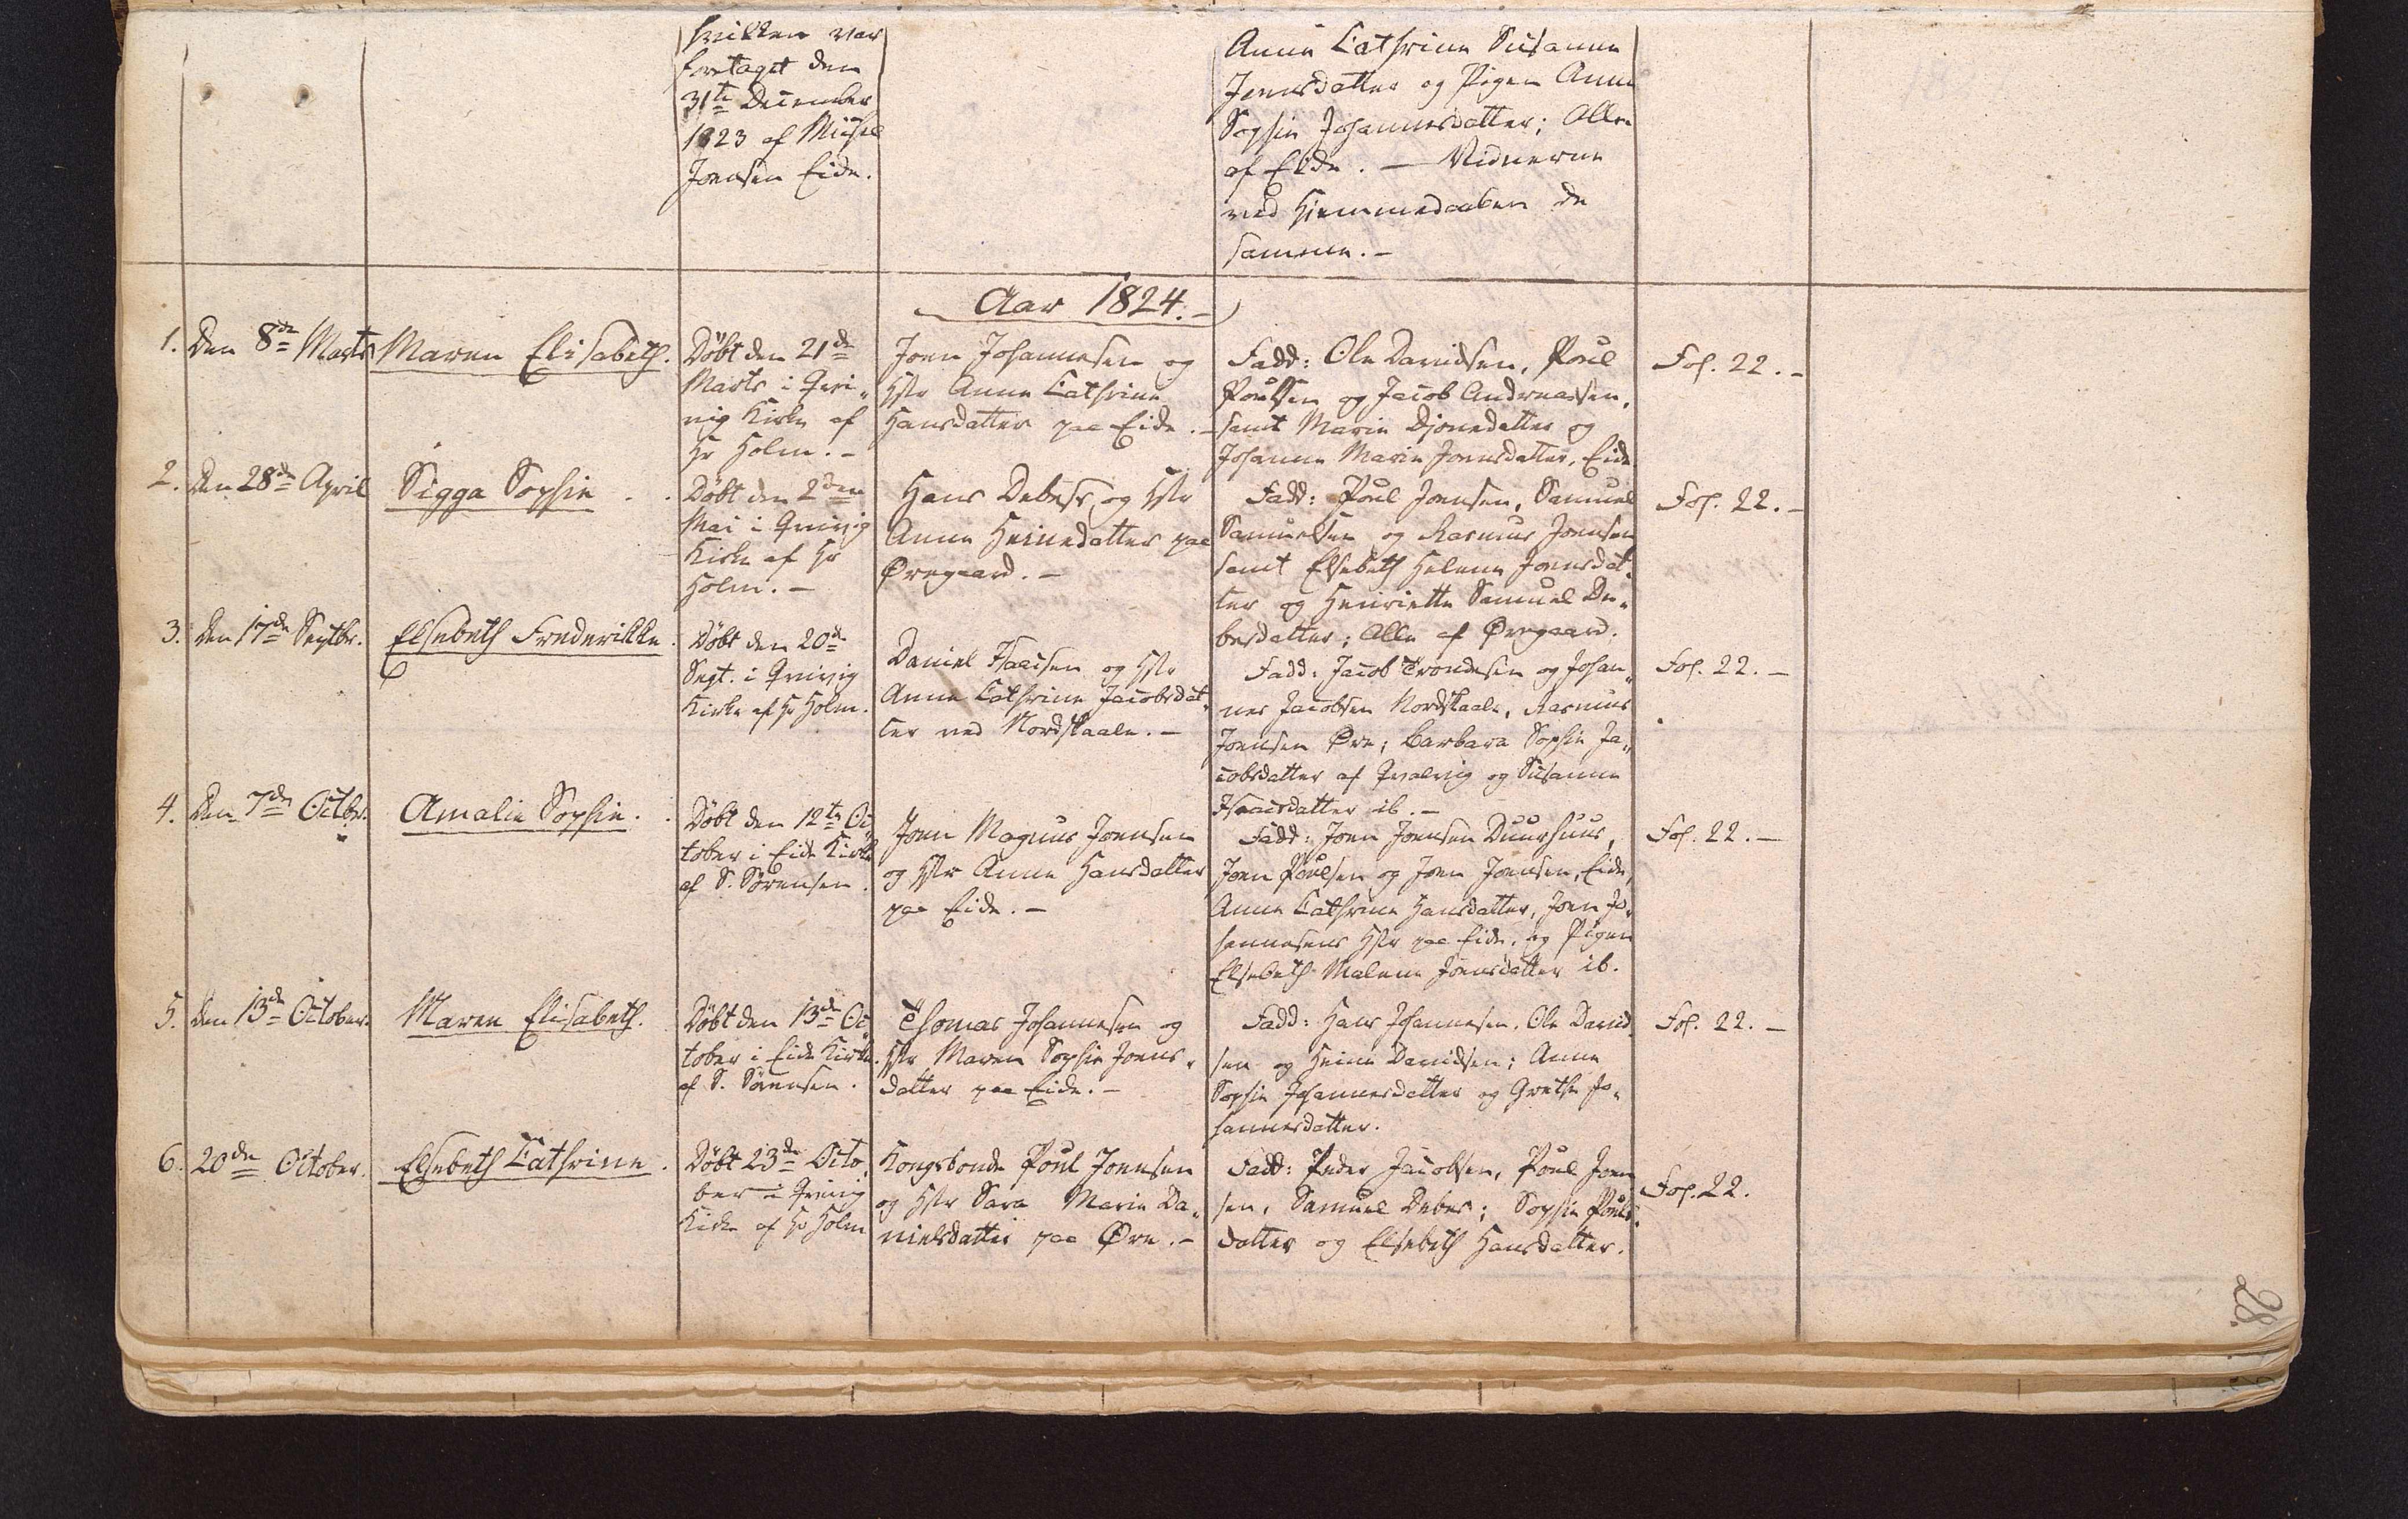 hvilken var
foretaget den
31te December
1823 af Michel
Joensen Eide.
Anne Cathrine Susanne
Joensdatter og Pigen Anne
Sophie Johannesdatter; Alle
af Eide. — Vidnerne
ved Hiemmedaaben de
samme. —
Aar 1824. —
1. Den 8de Marts
Maren Elisabeth.
Døbt den 21de
Marts i Qvi-
vig Kirke af
Hr Holm. —
Joen Johannesen og
Hstr Anne Cathrine
Hansdatter paa Eide. —
Fadd: Ole Davidsen, Poul
Poulsen og Jacob Andreassen,
samt Marie Djonedatter og
Johanne Marie Joensdatter, Eide
Fol. 22. —
2. Den 28de April
Sigga Sophie
Døbt den 2den
Mai i Qvivig
Kirke af Hr
Holm. —
Hans Debess og Hstr
Anne Heinedatter paa
Øregaard. —
Fadd: Poul Joensen, Samuel
Samuelsen og Rasmus Joensen
samt Elsebeth Helene Joensdat-
ter og Henriette Samuel De-
besdatter; Alle af Øregaard.
Fol. 22. —
3. Den 17de Septbr.
Elsebeth Frederikke.
Døbt den 20de
Sept. i Qvivig
Kirke af Hr Holm.
Daniel Isacsen og Hstr
Anne Cathrine Jacobsdat-
ter ved Nordskaale. —
Fadd: Jacob Trondesen og Johan-
nes Jacobsen Nordskaale, Rasmus
Joensen Øre; Barbara Sophie Ja-
cobsdatter af Qvalvig og Susanne
Isaacsdatter ib. —
Fol. 22. —
4. Den 7de Octbr.
Amalie Sophie.
Døbt den 12te Oc-
tober i Eide Kirke
af S. Sørensen.
Joen Magnus Joensen
og Hstr Anne Hansdatter
paa Eide. —
Fadd: Joen Joensen Duurhuus,
Joen Poulsen og Joen Joensen, Eide,
Anne Cathrine Hansdatter, Joen Jo-
hannesens Hstr paa Eide, og Pigen
Elsebeth Malene Joensdatter ib.
Fol. 22. —
5. Den 13de October.
Maren Elisabeth.
Døbt den 13de Oc-
tober i Eide Kirke
af S. Sørensen.
Thomas Johannesen og
Hstr Maren Sophie Joens-
datter paa Eide. —
Fadd: Hans Johannesen, Ole David-
sen og Heine Davidsen; Anne
Sophie Johannesdatter og Grethe Jo-
hannesdatter.
Fol. 22. —
6. 20de October.
Elsebeth Cathrine.
Døbt 23de Octo-
ber i Qvivig
Kirke af Hr Holm
Kongsbonde Poul Joensen
og Hstr Sara Marie Da-
nielsdatter paa Øre. —
Fadd: Peder Jacobsen, Poul Joen-
sen, Samuel Debes; Sophie Pouls-
datter og Elsebeth Hansdatter.
Fol. 22.
28.